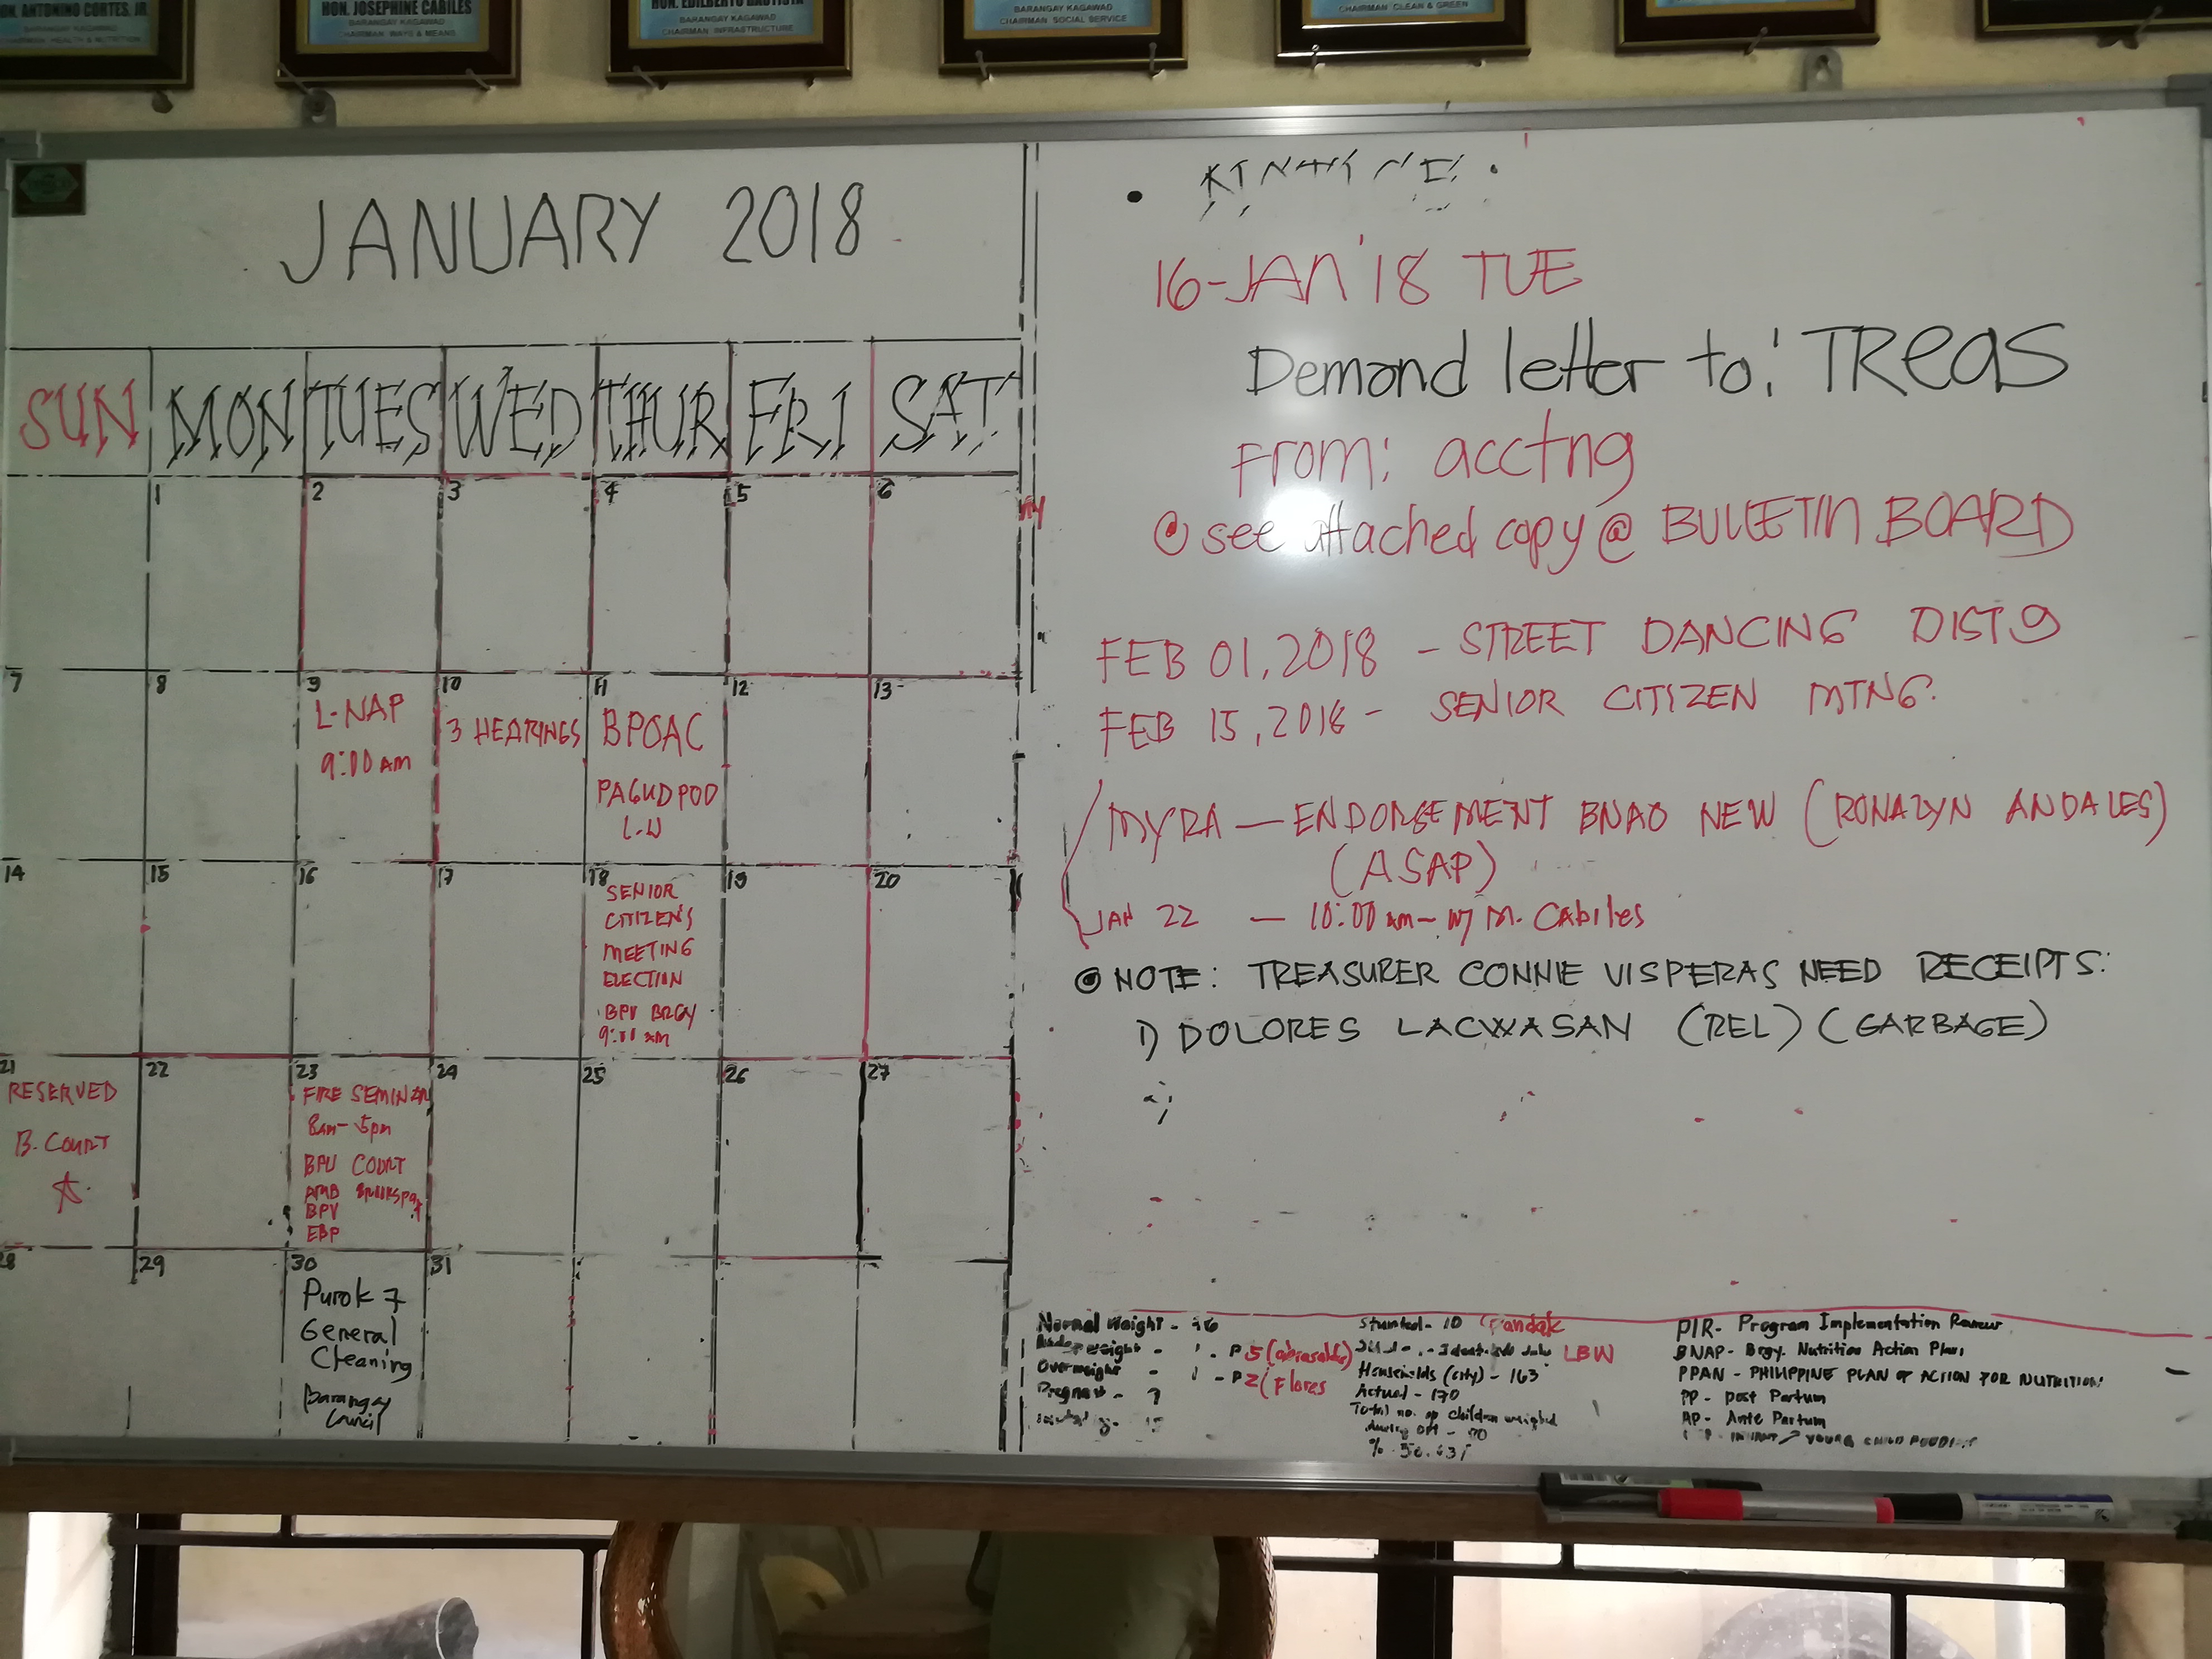 HON. ANTONINO CORTES, JR.
BARANGAY KAGAWAD
CHAIRMAN HEALTH & NUTRITION
HON. JOSEPHINE CABILES
BARANGAY KAGAWAD
CHAIRMAN WAYS & MEANS
HON. EDILBERTO BAUTISTA
BARANGAY KAGAWAD
CHAIRMAN INFRASTRUCTURE
BARANGAY KAGAWAD
CHAIRMAN SOCIAL SERVICE
CHAIRMAN CLEAN & GREEN
JANUARY 2018
SUN MON TUES WED THUR FRI SAT
1 2 3 4 5 6
7 8 9 10 11 12 13
L-NAP
9:00 AM
3 HEARINGS
BPOAC
PAGUDPOD
L-W
14 15 16 17 18 19 20
SENIOR
CITIZEN'S
MEETING
ELECTION
BPV BRGY
9:00 am
21 22 23 24 25 26 27
RESERVED
B. COURT
FIRE SEMINAR
8am-5pm
BPV COURT
AMB
BPV
EBP
28 29 30 31
Purok 7
General
Cleaning
Barangay
Council
16-JAN'18 TUE
Demand letter to: TREAS
From: acctng
see attached copy @ BULLETIN BOARD
FEB 01, 2018 - STREET DANCING DIST 9
FEB 15, 2018 - SENIOR CITIZEN MTNG.
MYRA — ENDORSEMENT BNAO NEW (RONALYN ANDALES)
(ASAP)
JAN 22 — 10:00 am - w/ M. Cabiles
NOTE: TREASURER CONNIE VISPERAS NEED RECEIPTS:
1) DOLORES LACWASAN (REL) (GARBAGE)
Normal Weight -
Underweight - 1 - P5
Overweight - 1 - P2 (Flores
Pregnant - 7
Stunted - 10 (Pandak
LBW
Households (city) - 163
Actual - 170
Total no. of children weighed
PIR - Program Implementation Review
BNAP - Brgy. Nutrition Action Plan
PPAN - PHILIPPINE PLAN OF ACTION FOR NUTRITION
PP - Post Partum
AP - Ante Partum